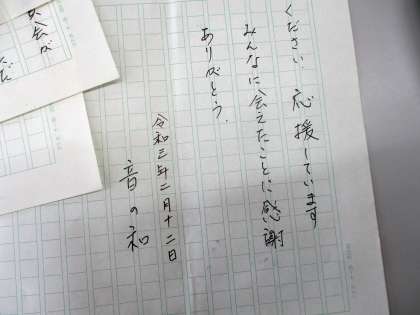 ください 応援しています
みんなに会えたことに感謝
ありがとう.
令和三年二月十二日
音の和
会が